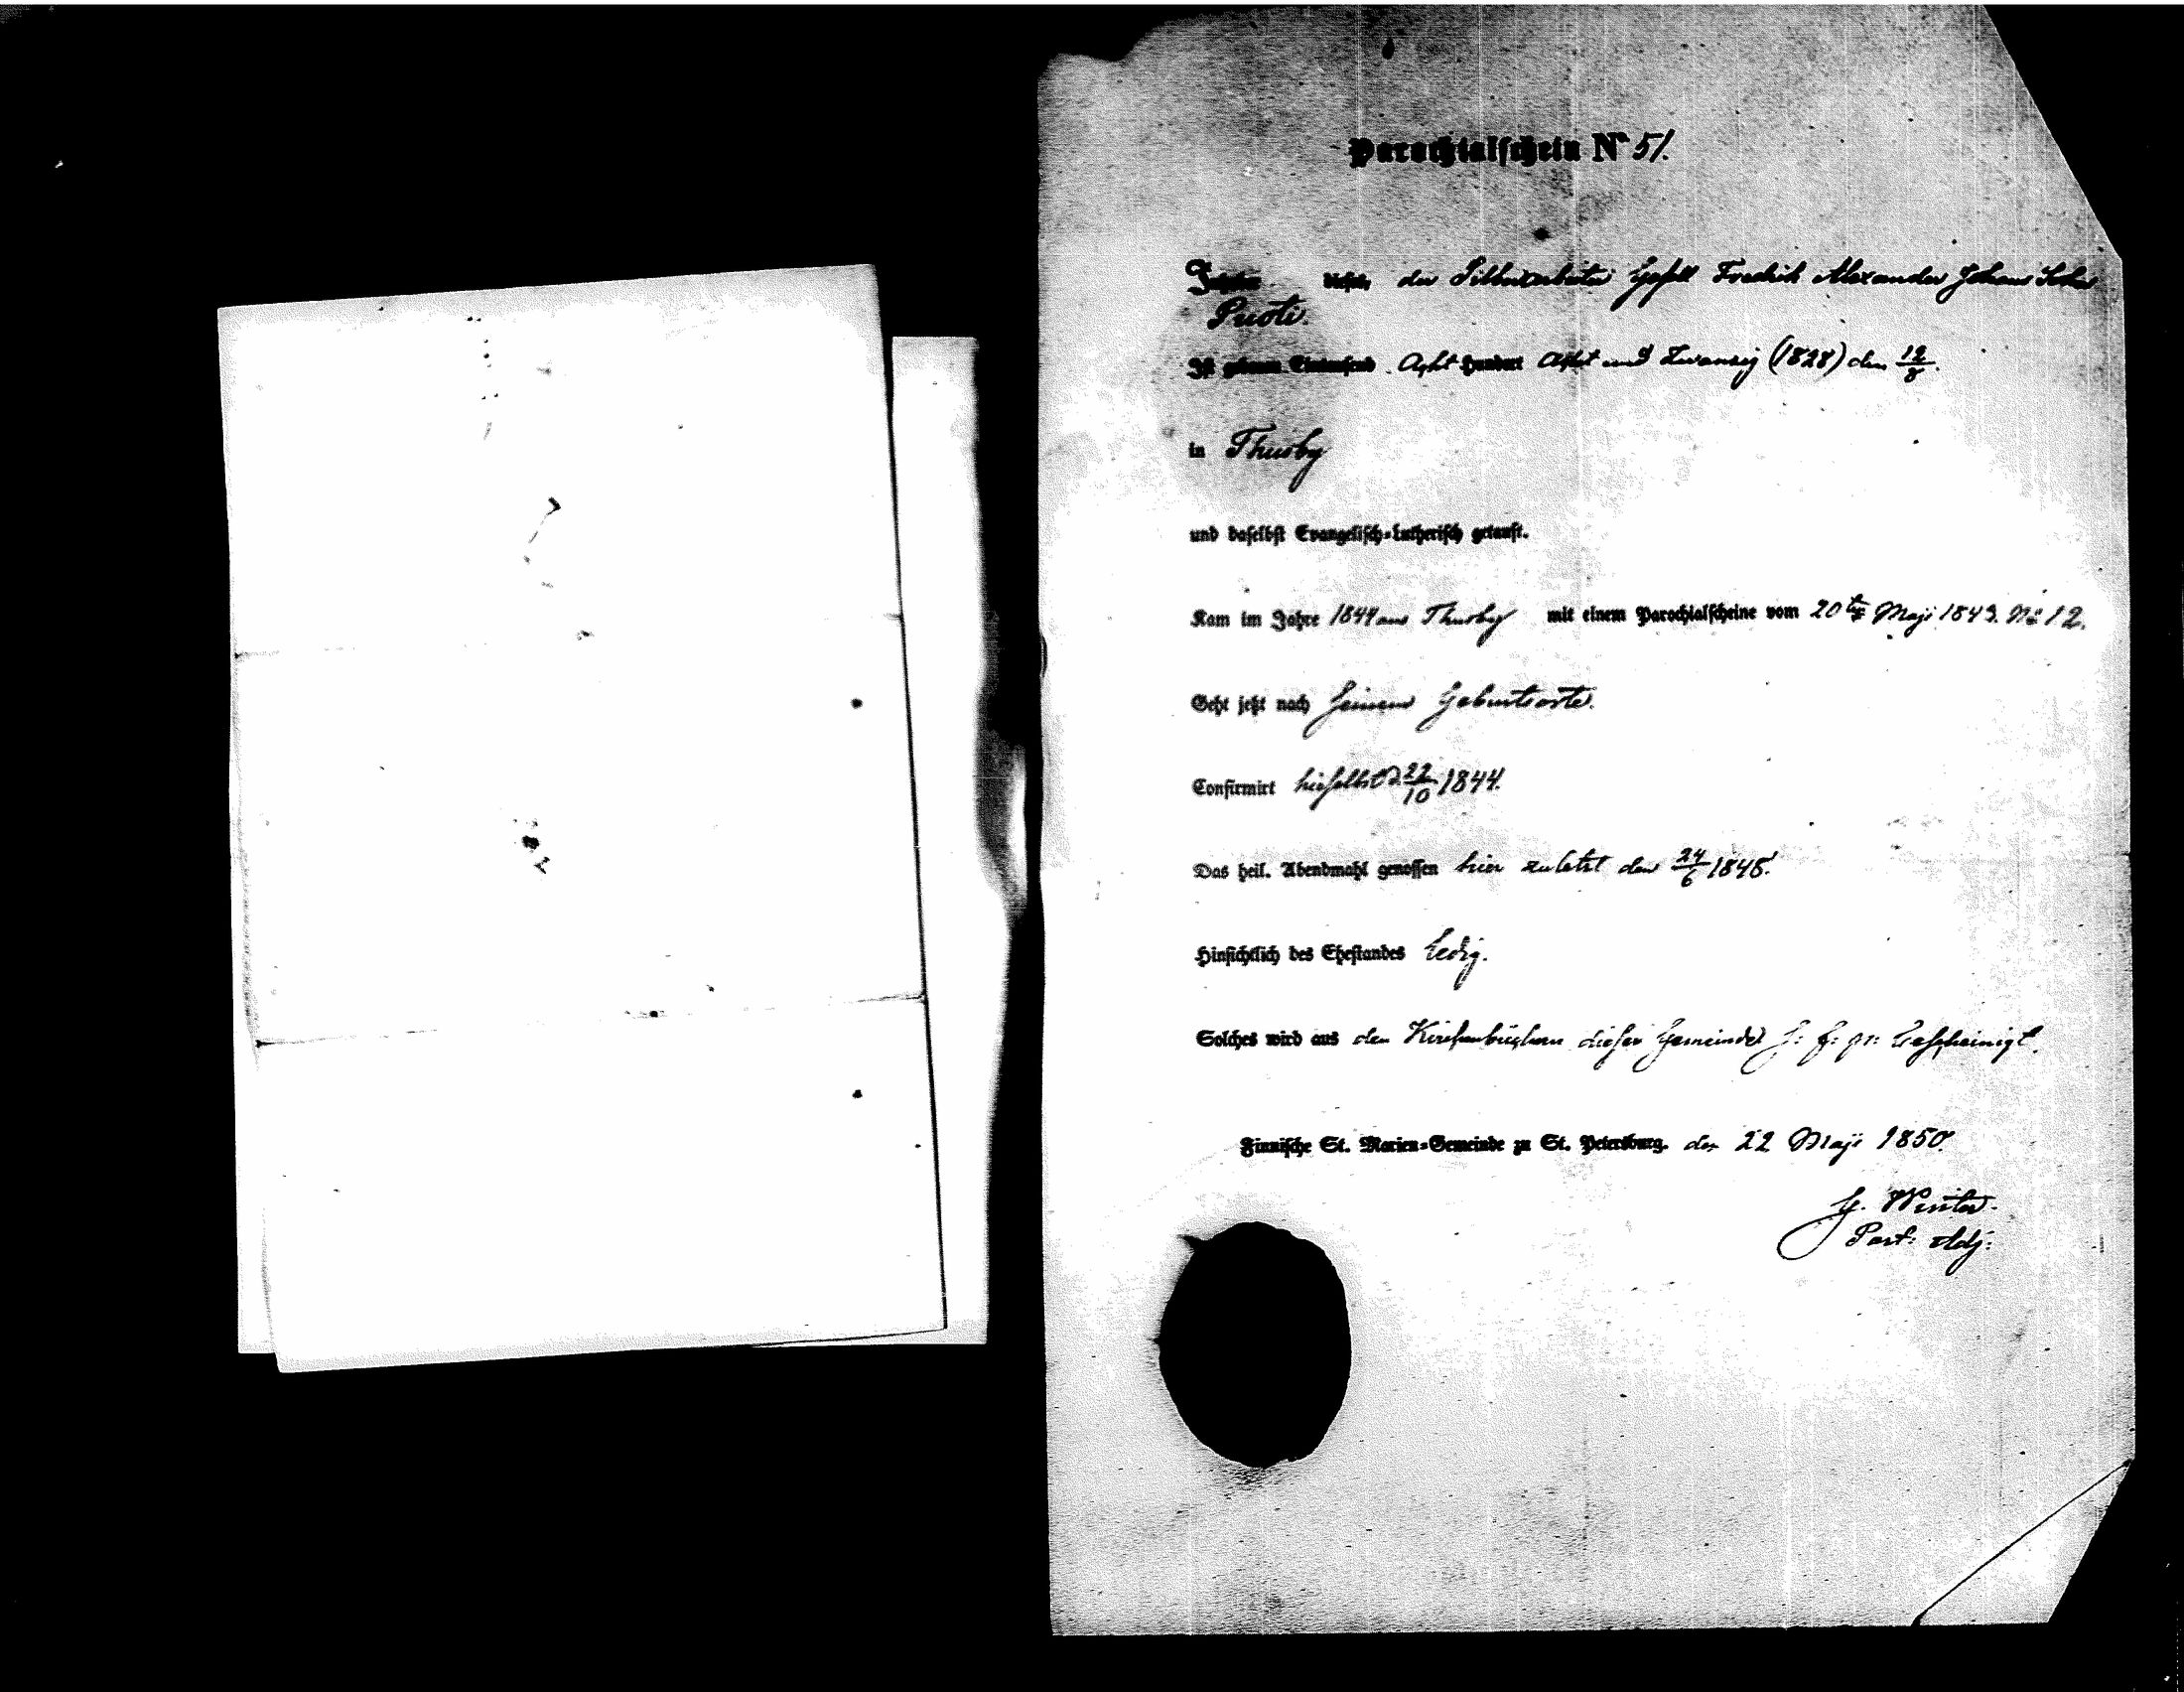 Parochialschein No 51.
Inhaber dieses, der Silberarbeiter Gesell Fredrik Alexander Johans Sohn
Ist geboren Eintausend Acht Hundert Acht und Zwanzig (1828) den 12/8.
in Thusby
und daselbst Evangelisch-Lutherisch getauft.
Kam im Jahre 1844 aus Thusby mit einem Parochialscheine vom 20 Maji 1843. No 12.
Geht jetzt nach seinem Geburtsorte.
Confirmirt hieselbst d 22/10 1844.
Das heil. Abendmahl genossen hier zuletzt den 24/6 1848.
Hinsichtlich des Ehestandes ledig.
Solches wird aus den Kirchenbüchern dieser Gemeinde bescheinigt.
Finnische St. Marien-Gemeinde zu St. Petersburg. den 22 Maji 1850.
Winter.
Past: Adj: